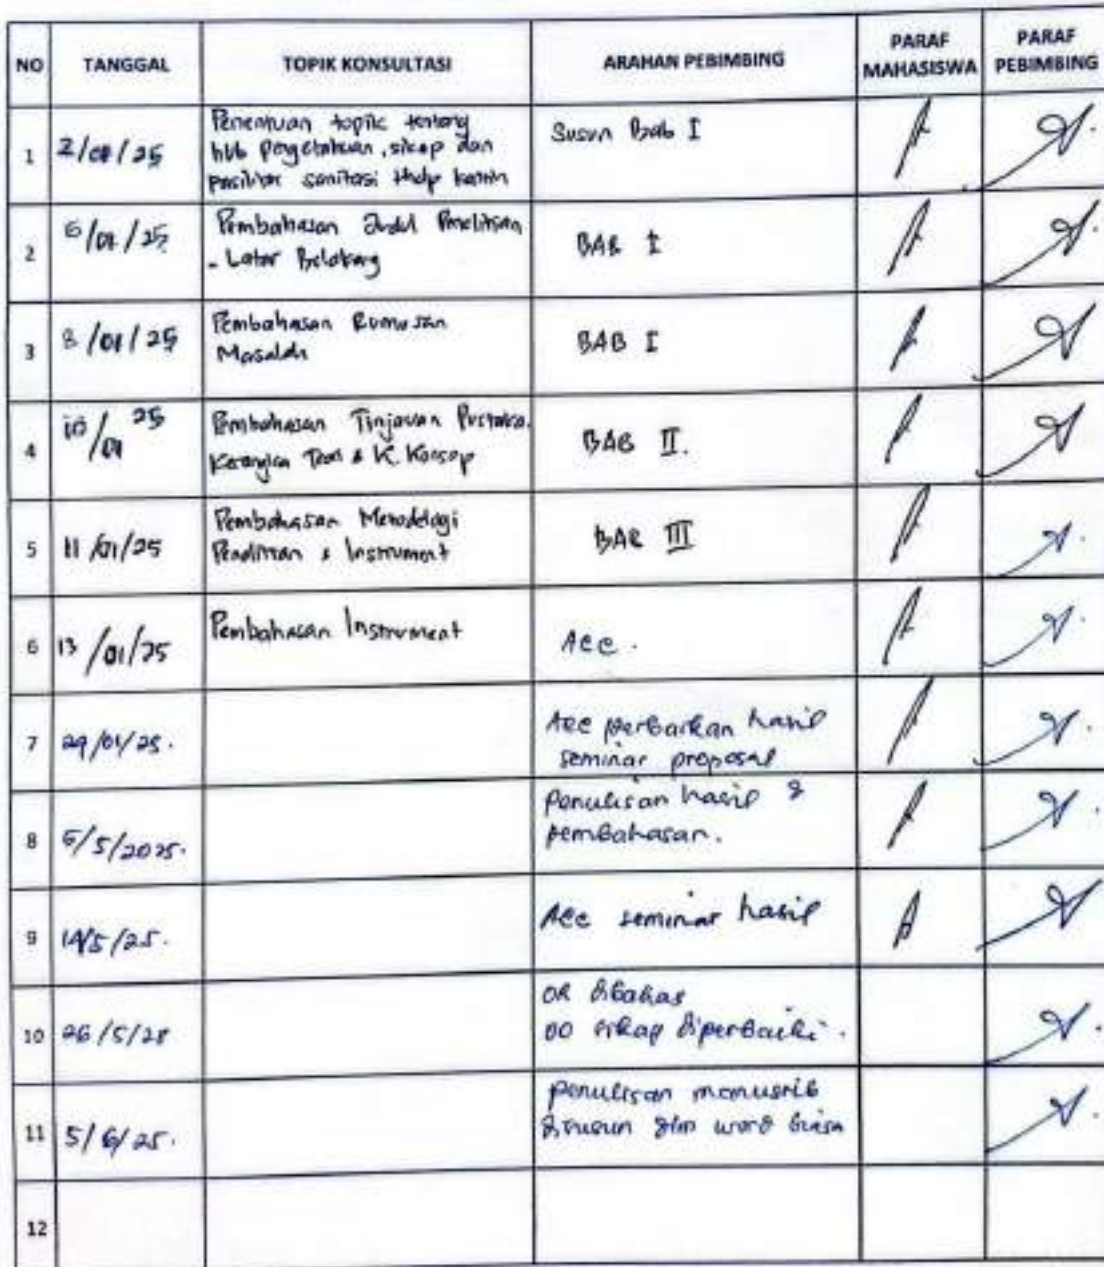 NO TANGGAL TOPIK KONSULTASI ARAHAN PEBIMBING PARAF MAHASISWA PARAF PEBIMBING
1 2/01/25 Penentuan topik tentang Susun Bab I
hub pengetahuan, sikap dan
sanitasi thdp
2 6/01/25 Pembahasan Judul Penelitian BAB I
- Latar Belakang
3 8/01/25 Pembahasan Rumusan BAB I
Masalah
4 10/01 25 Pembahasan Tinjauan Pustaka, BAB II.
Kerangka Teori & K. Konsep
5 11/01/25 Pembahasan Metodelogi BAB III
Penelitian & Instrument
6 13/01/25 Pembahasan Instrument Acc.
7 29/01/25. Acc perbaikan hasil
seminar proposal
8 6/5/2025. penulisan hasil &
pembahasan.
9 14/5/25. Acc seminar hasil
10 26/5/25 OR dibahas
DO sikap diperbaiki.
11 5/6/25. penulisan
disusun dlm word biasa
12